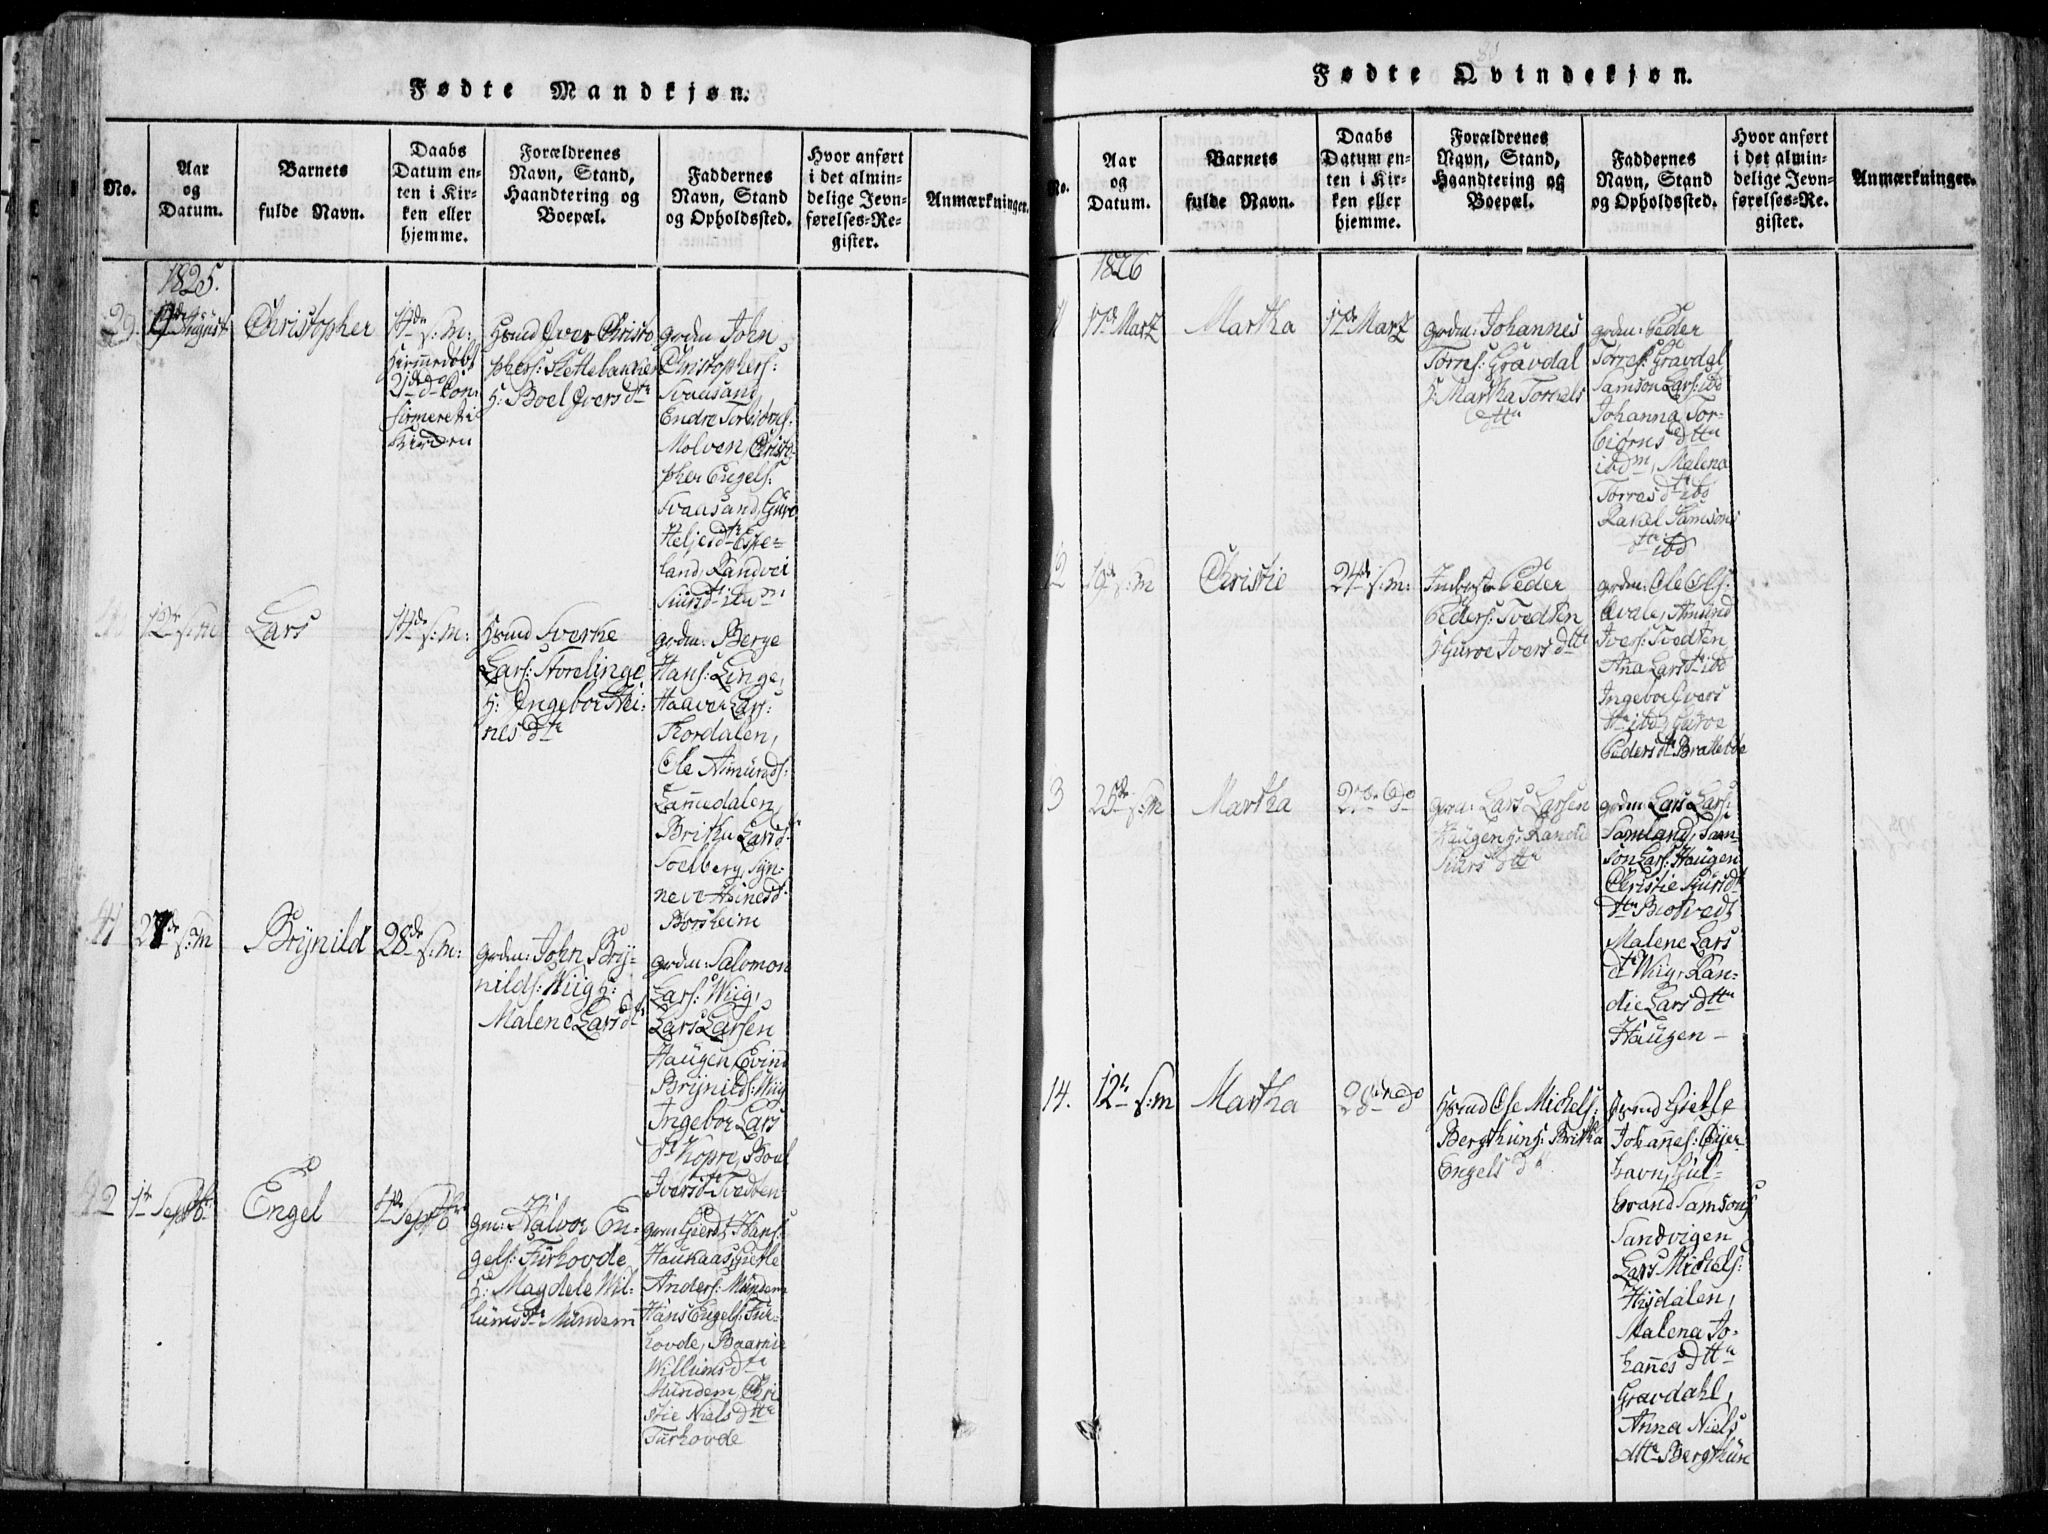 Fødte Mandkjøn.
No.
Aar
og
Datum.
Barnets
fulde Navn.
Daabs
Datum en-
ten i Kir-
ken eller
hjemme.
Forældrenes
Navn, Stand,
Haandtering og
Boepæl.
Faddernes
Navn, Stand
og Opholdssted.
Hvor anført
i det almin-
delige Jevn-
førelses-Re-
gister.
Anmærkninger.
1825.
29.
August
Christopher
14de s:m:
hiemmedøbt
21de do Con-
firmeret i
Kirken
Hsmd Iver Christo
phers: Slettebakken
H: Boel Ivers dtr
grdm John
Christophers:
Svaasand,
Endre Torbiørns:
Molven, Christo-
pher Engels:
Svaasand, Guro
Heljesdtr Espe-
land, Randvei
Siursdtr
12te s:m
Lars
14de s:m:
Hsmd Sverke
Lars: Storelinge
H: Ingebor Stei-
nes dtr
grdm: Berge
Hans: Linge,
Haaver Lars:
Thordalen,
Ole Amunds:
Lannedalen,
Britha Larsd:
Soelberg, Syn-
neve
Børsheim
41
27de s:m
Brynild
28de s:m:
grdm: John Bry-
nilds: Wiig H:
Malene Lars dtr
grdm: Salomon
Lars: Wiig,
Lars Larsen
Haugen, Evind
Brynilds: Wiig
Ingebor Lars
dtr Kopre, Boel
Iversdtr Tvedten
42
1te Septbr
Engel
4de Septbr
gm: Halvor En-
gels: Furhovde
H: Magdele Wil-
lums dtr Mundem
grdm Gierdt Hans:
Haukaas, Gietle
Anders: Mundem
Hans Engels: Fur-
hovde, Baarnie
Willums dtr
Mundem, Chri
stie Niels dtr
Furhovde
Fødte Qvindekjøn.
No.
Aar
og
Datum.
Barnets
fulde Navn.
Daabs
Datum en-
ten i Kir-
ken eller
hjemme.
Forældrenes
Navn, Stand,
Haandtering og
Boepæl.
Faddernes
Navn, Stand
og Opholdssted.
Hvor anført
i det almin-
delige Jevn-
førelses-Re-
gister.
Anmærkninger.
1826
Martz
Martha
17de Martz
grdm: Johannes
Torres: Gravdal
H: Martha Torkels
dtr
grdm: Peder
Torres: Gravdal
Samson Lars: ibd
Johanna Tor-
biørns dtr
ibdm, Malena
Torres dtr ibd
Rakel Samsons
dtr ibd
s:m
Christie
24de s:m:
Inderste Peder
Peders: Tvedten
H: Guroe Ivers dtr
grdm: Ole Ols:
Qvale, Amund
Ivers: Tvedten
Ana Larsdtr ibd
Ingebor Ivers
dtr ibd, Guroe
Peders dtr Brattebøe
3
25de s:m
Martha
grm: Lars Larsen
Haugen H: Randie
Siurs dtr
grdm Lars Lars:
Samland, Sam-
son Lars: Haugen
Christie Siurs
dtr Botvedt
Malene Lars
dtr Wiig, Ran-
die Lars dtr
Haugen
14.
12te s:m
Martha
Hsmd Ole Michels:
Bergthun H: Britha
Engels dtr
Hsmd Gietle
Johannes: Øyer-
havn, Gul-
brand Samsons
Sandvigen
Lars Michels:
Hisdalen,
Malena Jo-
hannes dtr
Gravdahl,
Anna Niels
dtr Bergthun